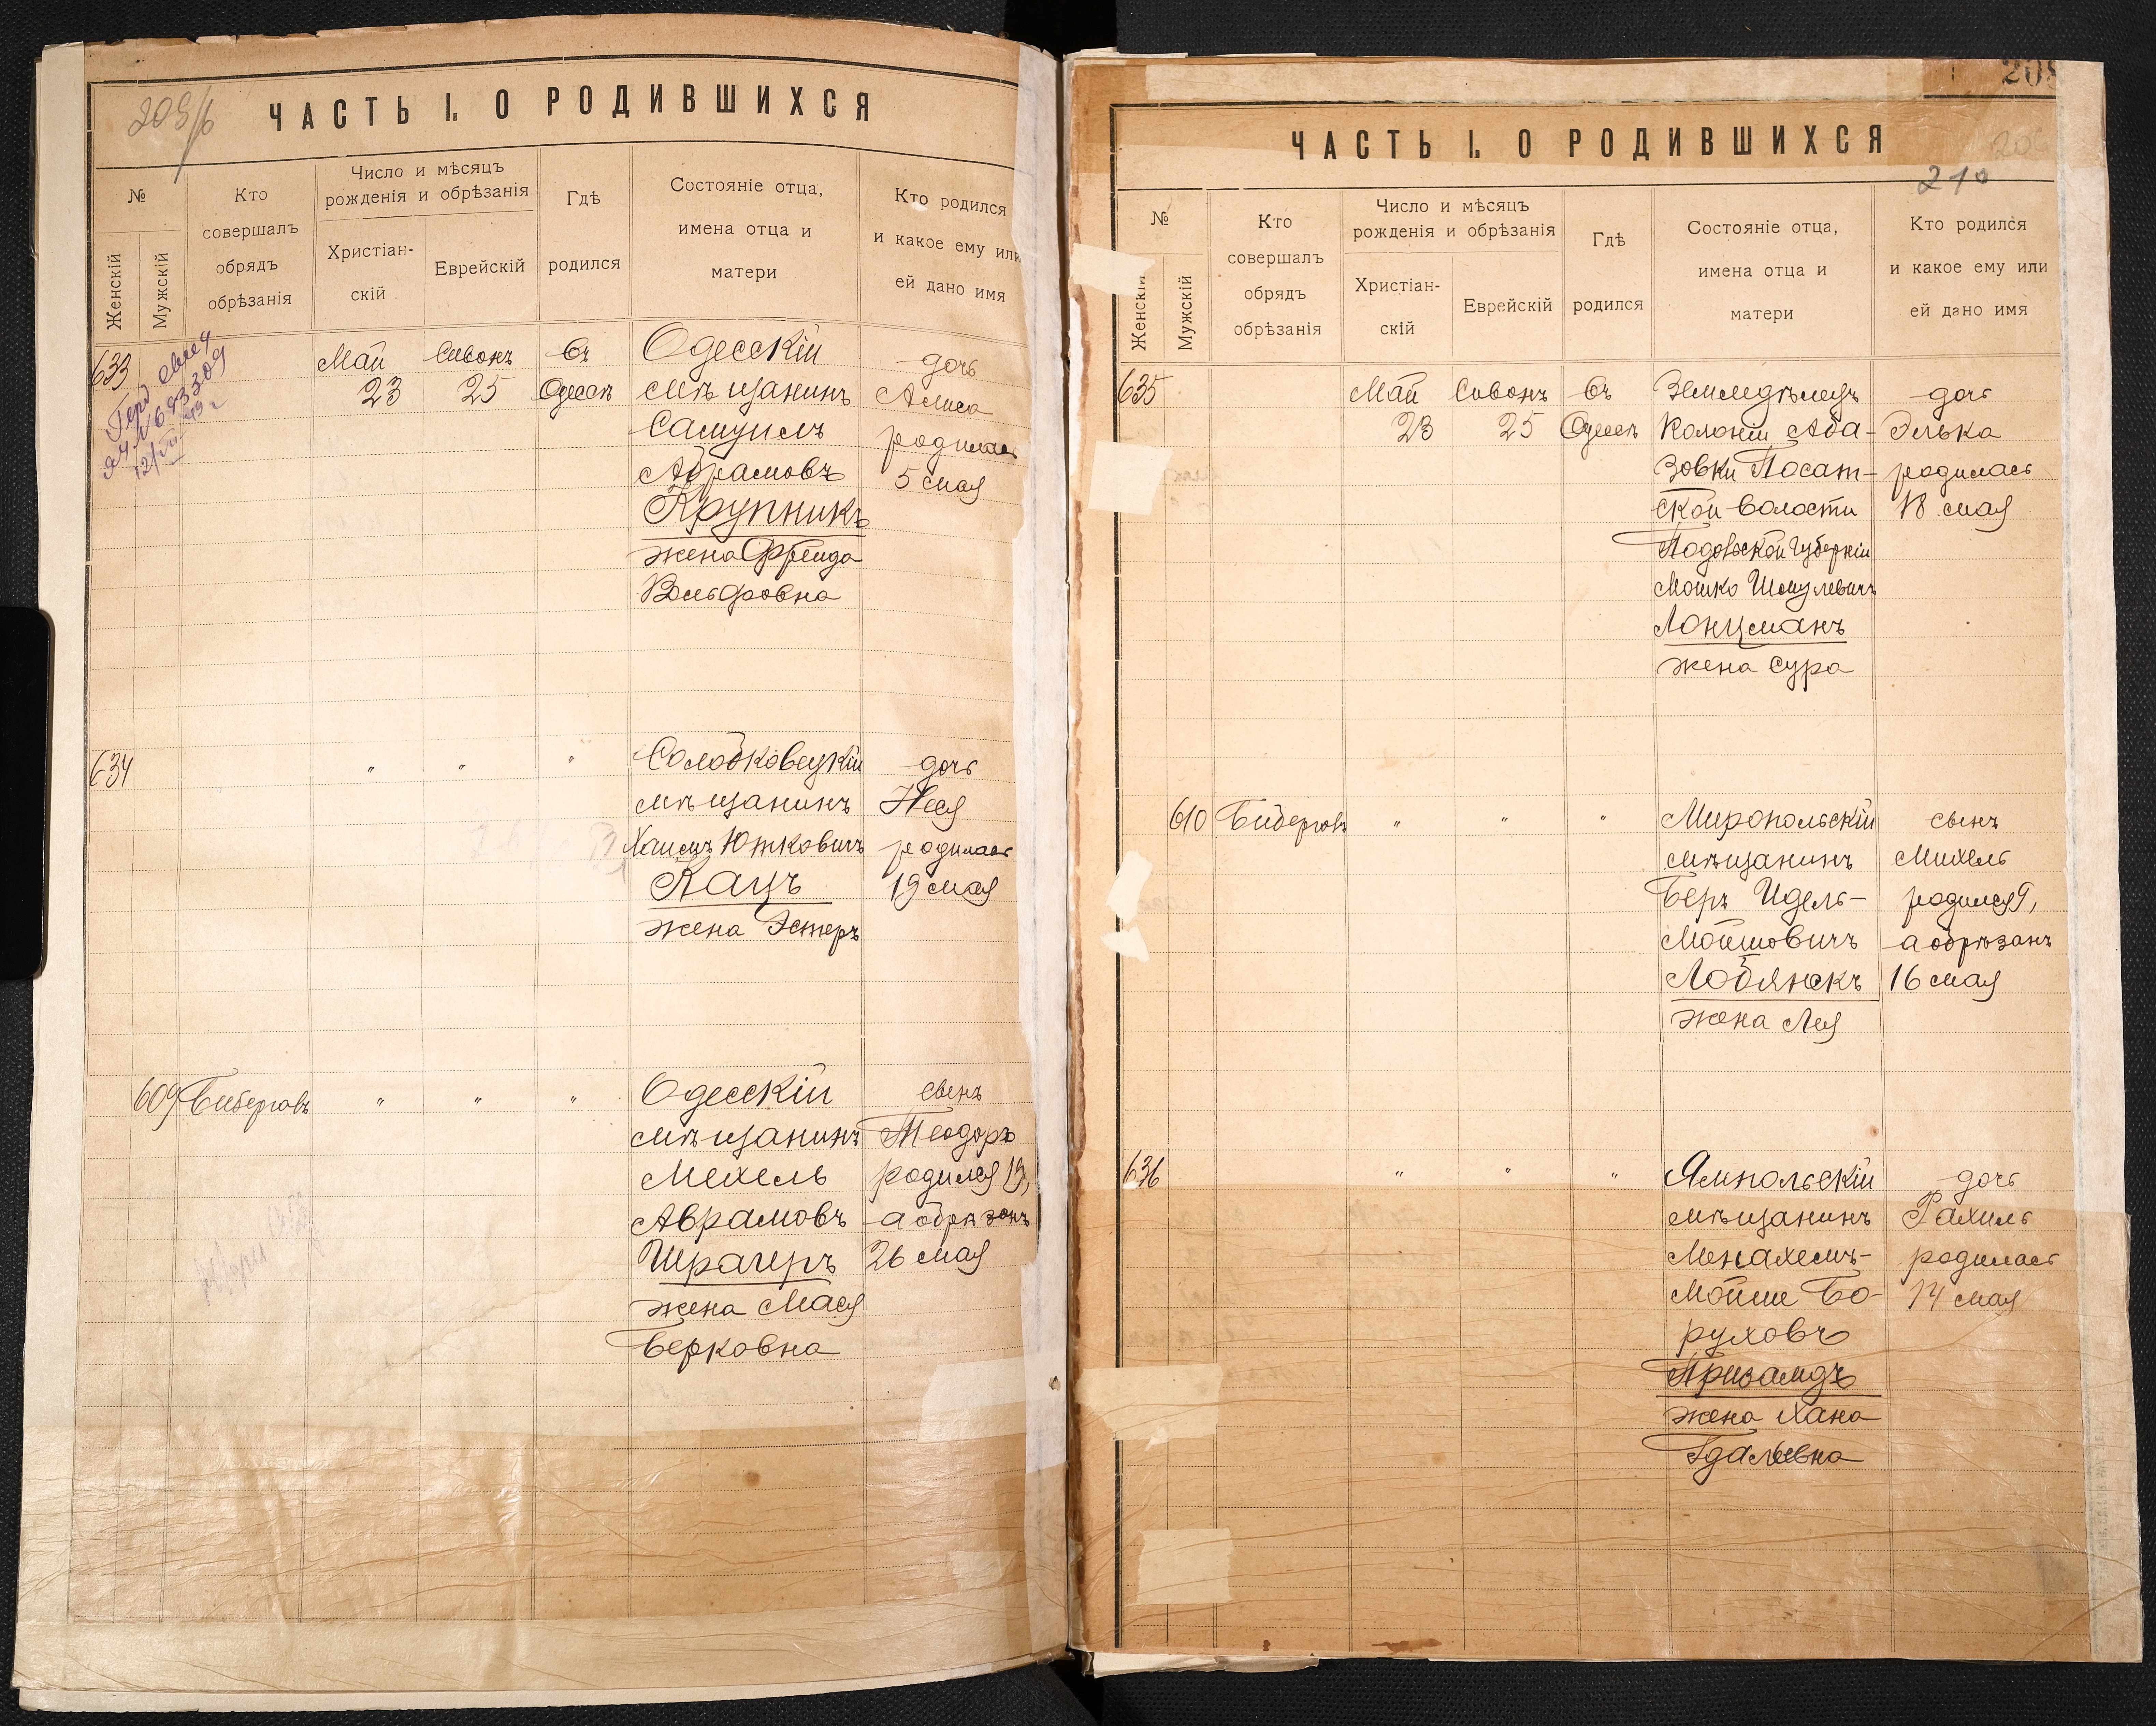 209/б
ЧАСТЬ I. О РОДИВШИХСЯ
№
Женскій
Мужскій
Кто
совершалъ
обрядъ
обрѣзанія
Число и мѣсяцъ
рожденія и обрѣзанія
Христіан-
скій
Еврейскій
Гдѣ
родился
Состояніе отца,
имена отца и
матери
Кто родился
и какое ему или
ей дано имя
633
Май
23
Сивонъ
25
Въ
Одессѣ
Одесскій
мѣщанинъ
Самуилъ
Абрамовъ
Крупникъ
жена Фрейда
Вольфовна
дочь
Алиса
родилась
5 мая
634
"
"
"
Солобковецкій
мѣщанинъ
Хаимъ Юткович
Кацъ
жена Эстеръ
дочь
Неся
родилась
19 мая
609
Биберговъ
"
"
"
Одесскій
мѣщанинъ
Мехель
Аврамовъ
Шрагеръ
жена Мася
Берковна
сынъ
Теодоръ
родился 19,
а обрѣзанъ
26 мая
ЧАСТЬ I. О РОДИВШИХСЯ
210
№
Женскій
Мужскій
Кто
совершалъ
обрядъ
обрѣзанія
Число и мѣсяцъ
рожденія и обрѣзанія
Христіан-
скій
Еврейскій
Гдѣ
родился
Состояніе отца,
имена отца и
матери
Кто родился
и какое ему или
ей дано имя
635
Май
23
Сивонъ
25
Въ
Одессѣ
Земледѣлецъ
Колоніи Аба-
зовки Посат-
ской волости
Подольской Губерніи
Мошко Шмулевичъ
Лонцманъ
жена Сура
дочь
Элька
родилась
18 мая
610
Биберговъ
"
"
"
Миропольскій
мѣщанинъ
Беръ Идель-
Мойшовичъ
Лобянскъ
жена Лея
сынъ
Михель
родился 9,
а обрѣзанъ
16 мая
636
"
"
"
Ямпольскій
мѣщанинъ
Менахемъ-
Мойше Бо-
руховъ
Призамдъ
жена Хана
Гдальевна
дочь
Рахиль
родилась
14 мая